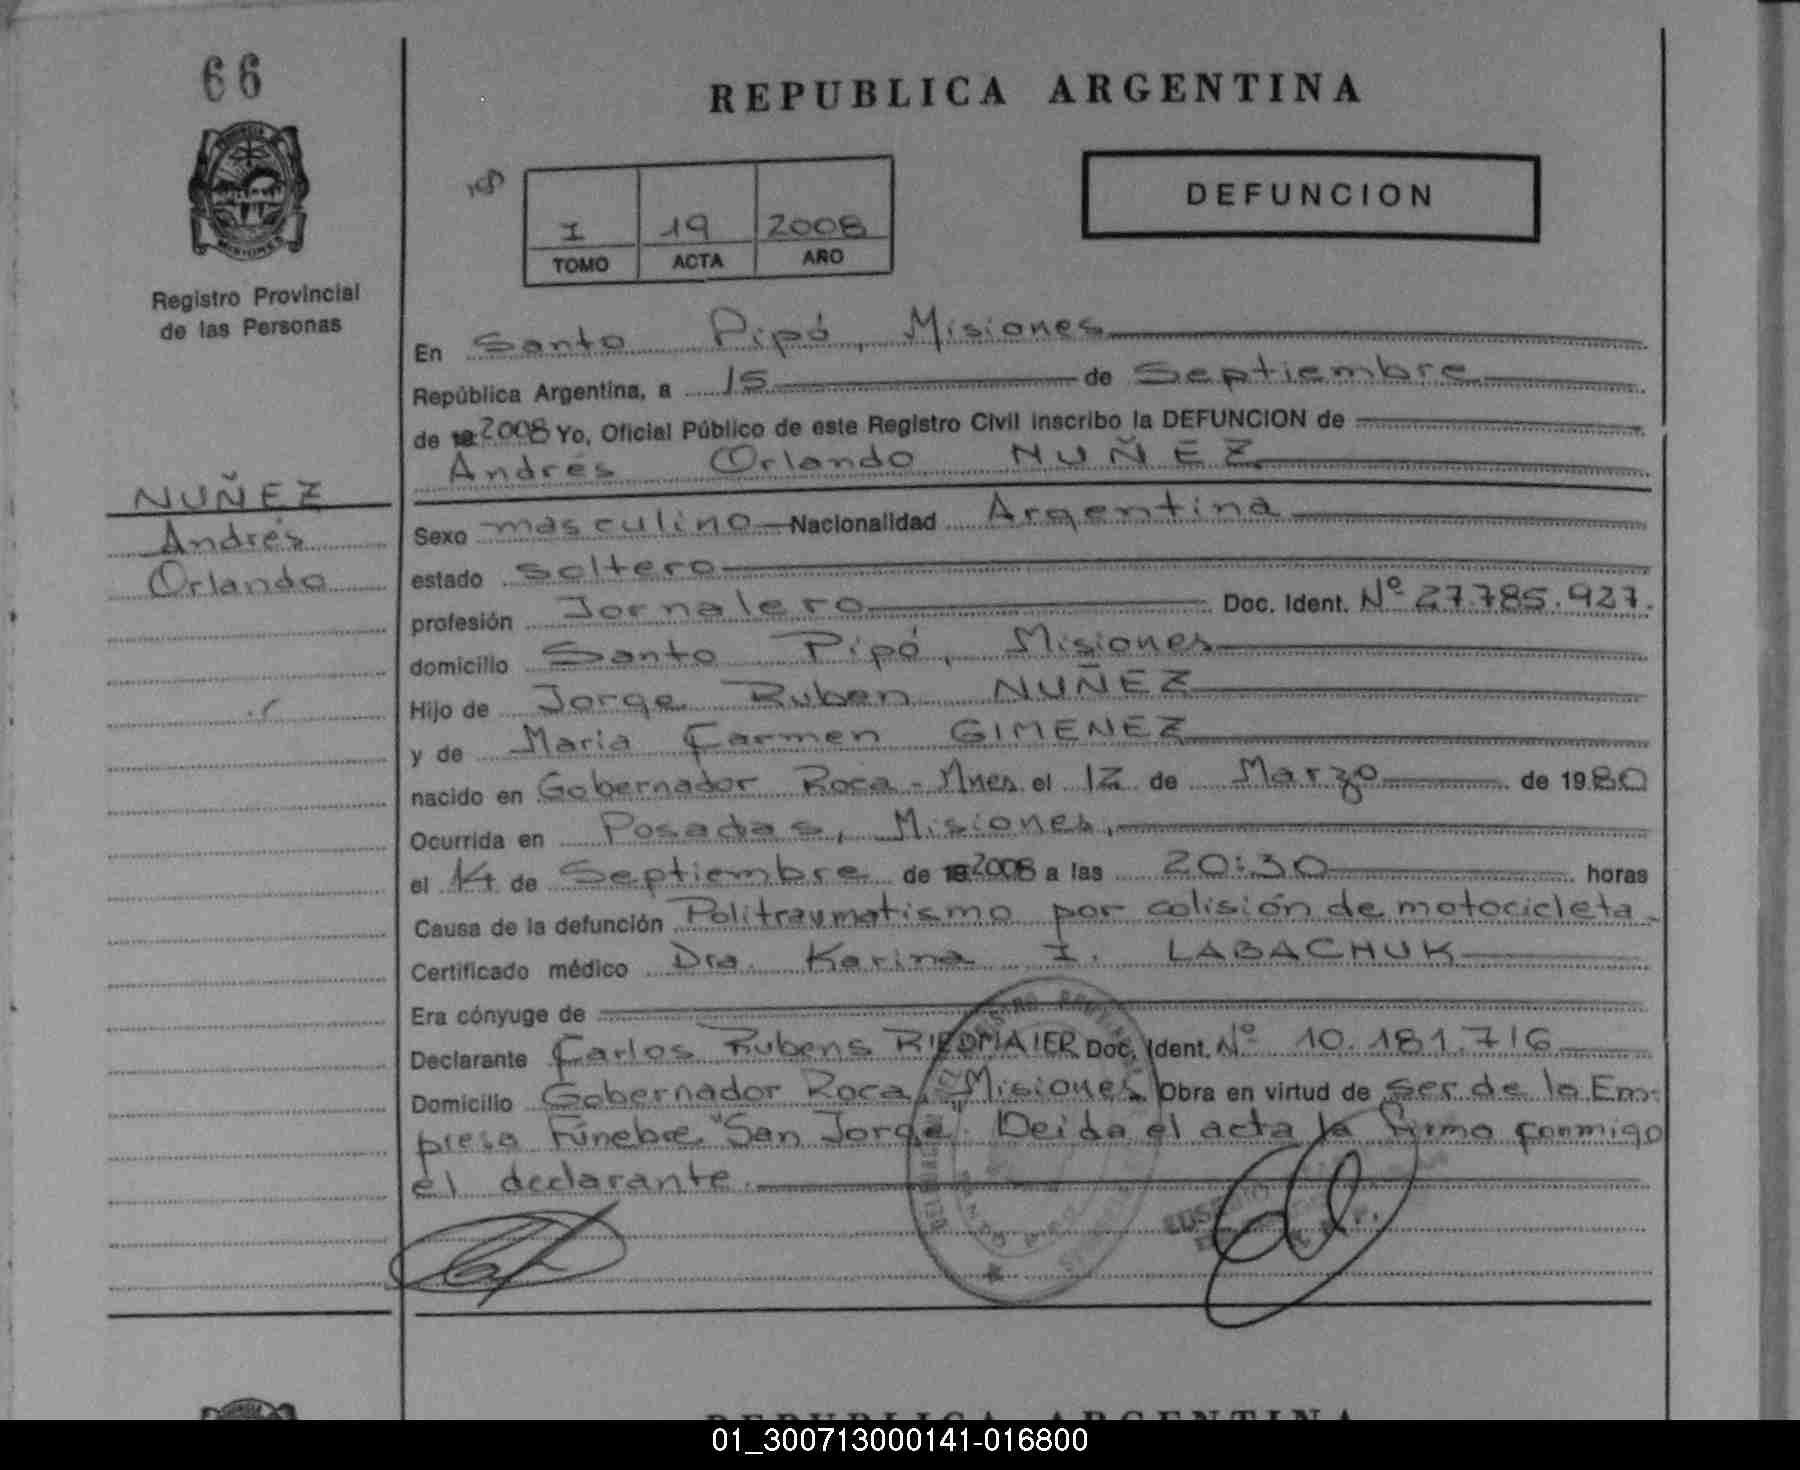 66
REPUBLICA ARGENTINA
DEFUNCION
I 19 2008
TOMO ACTA AÑO
Registro Provincial
de las Personas
NUÑEZ
Andrés
Orlando
En Santo Pipó, Misiones
República Argentina, a 15 de Septiembre
de 2008 Yo, Oficial Público de este Registro Civil inscribo la DEFUNCION de
Andrés Orlando NUÑEZ
Sexo masculino Nacionalidad Argentina
estado soltero
profesión Jornalero Doc. Ident. Nº 27.785.927.
domicilio Santo Pipó, Misiones
Hijo de Jorge Ruben NUÑEZ
y de Maria Carmen GIMENEZ
nacido en Gobernador Roca - Mnes el 12 de Marzo de 1980
Ocurrida en Posadas, Misiones,
el 14 de Septiembre de 2008 a las 20:30 horas
Causa de la defunción Politraumatismo por colisión de motocicleta
Certificado médico Dra. Karina I. LABACHUK
Era cónyuge de
Declarante Carlos Rubens RIEDMAIER Doc. Ident. Nº 10.181.716
Domicilio Gobernador Roca, Misiones Obra en virtud de ser de la Em-
presa Fúnebre "San Jorge". Leida el acta la firma conmigo
el declarante.
REPUBLICA ARGENTINA
01_300713000141-016800